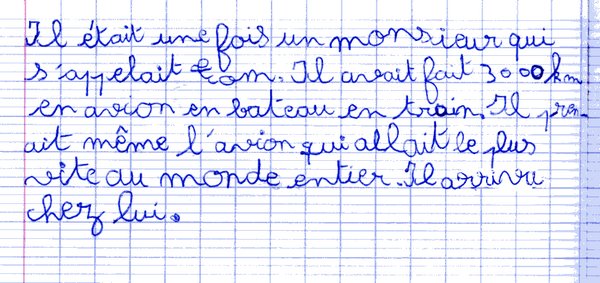 Il était une fois un monsieur qui
s'appelait tom. Il avait fait 3000km
en avion en bateau en train. Il pren-
ait même l'avion qui allait le plus
vite au monde entier. Il arriva
chez lui.